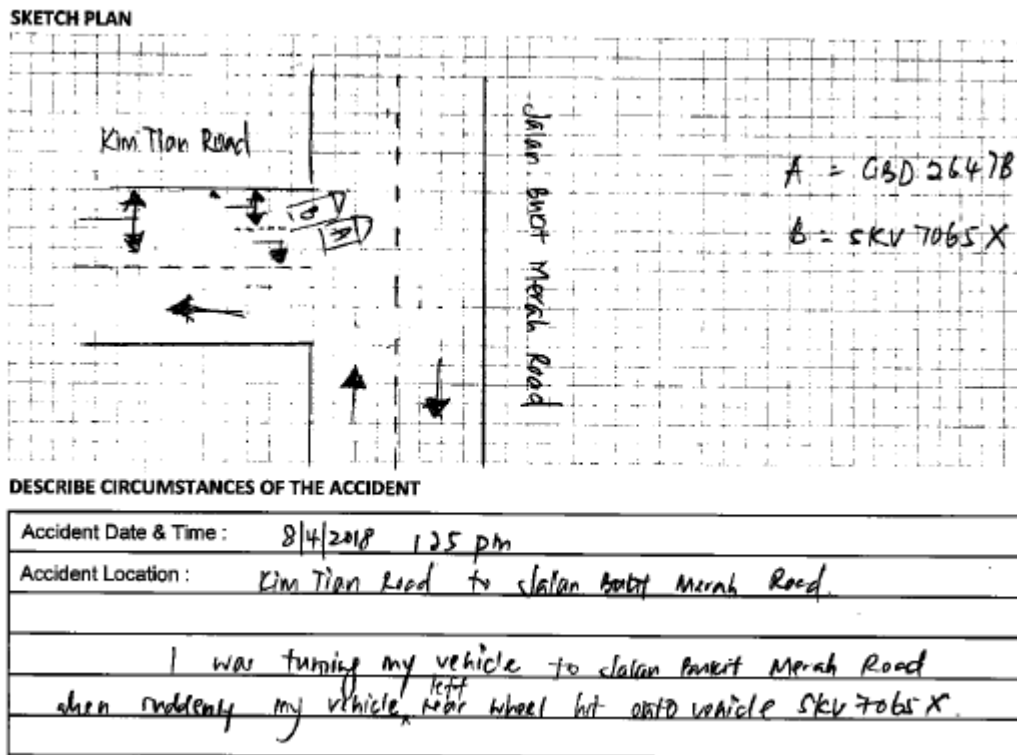 SKETCH PLAN
Kim Tian Road
Jalan Bukit Merah Road
A = GBD 2647B
B = SKV 7065 X
B
A
DESCRIBE CIRCUMSTANCES OF THE ACCIDENT
Accident Date & Time : 8/4/2018 1 25 pm
Accident Location : Kim Tian Road to Jalan Bukit Merah Road.
I was turning my vehicle to Jalan Bukit Merah Road
when suddenly my vehicle left rear wheel hit onto vehicle SKV 7065 X.